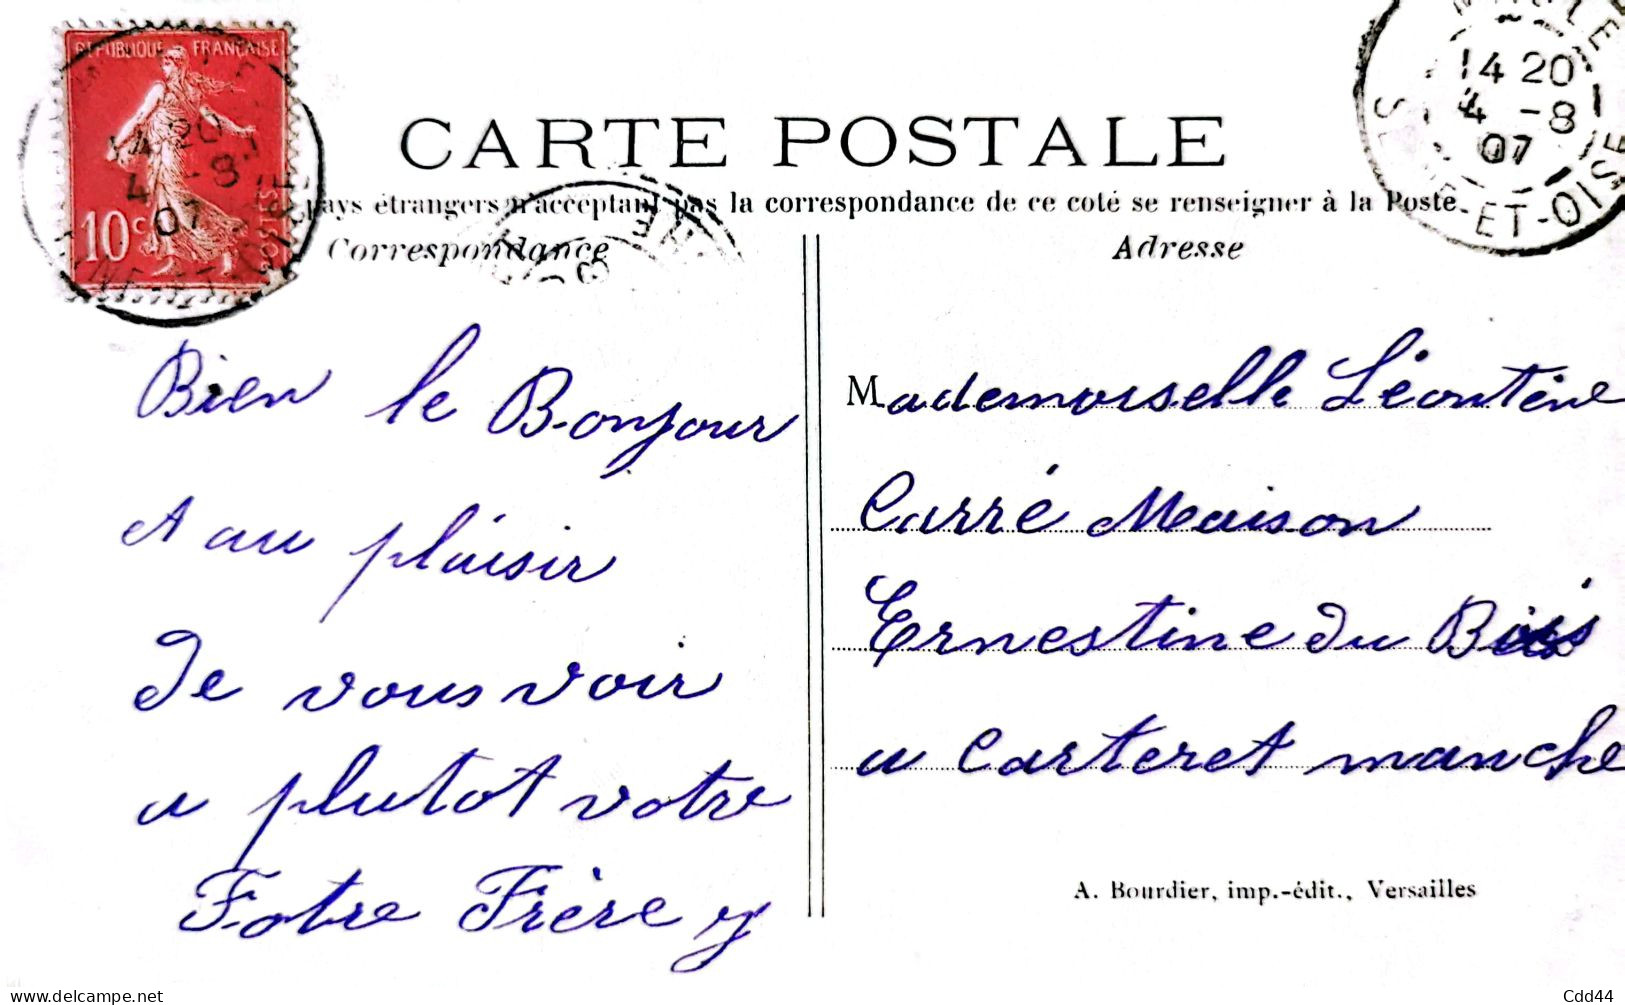 RÉPUBLIQUE FRANÇAISE
10c POSTES
14 20
4 -8
07
14 20
4 -8
07
ET-OISE
CARTE POSTALE
pays étrangers n'acceptant pas la correspondance de ce coté se renseigner à la Poste
Correspondance
Adresse
Bien le Bonjour
et au plaisir
De vous voir
a plutot votre
Fotre Frère
Mademoiselle Léontine
Carré Maison
Ernestine du Bois
a Carteret manche
A. Bourdier, imp.-édit., Versailles
Cdd44